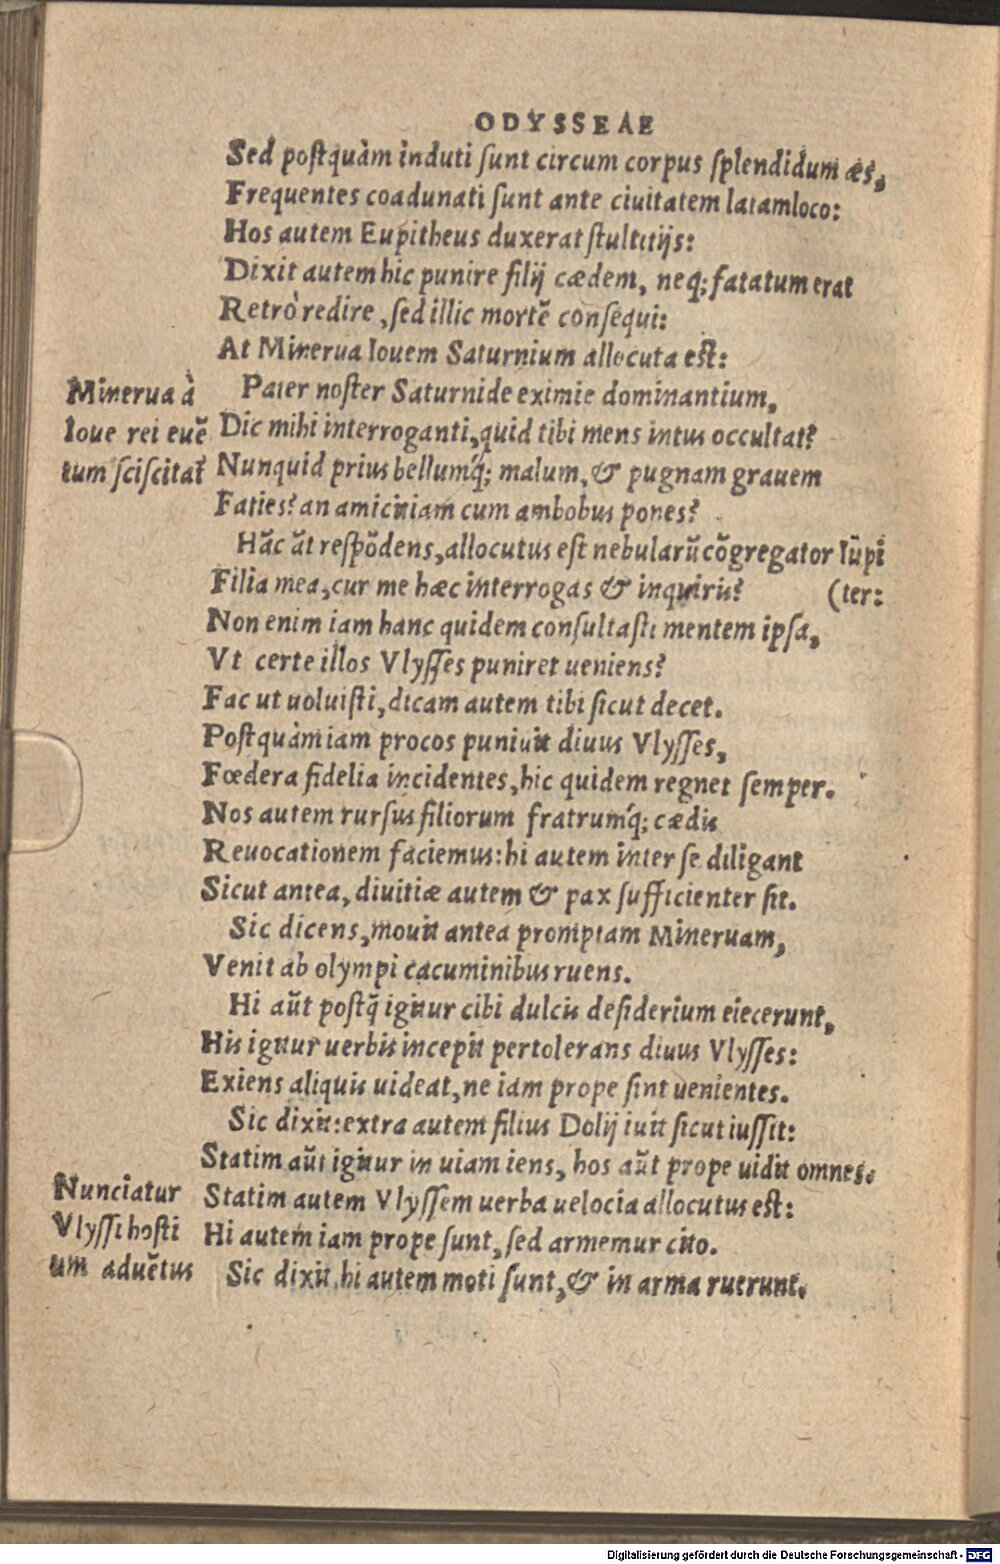 ODYSSEAE
Sed postquàm induti sunt circum corpus splendidum æs,
Frequentes coadunati sunt ante ciuitatem latamloco:
Hos autem Eupitheus duxerat stultitijs:
Dixit autem hic punire filij cædem, neq; fatatum erat
Retrò redire, sed illic mortẽ consequi:
At Minerua Iouem Saturnium allocuta est:
Pater noster Saturnide eximie dominantium,
Dic mihi interroganti, quid tibi mens intus occultat?
Nunquid prius bellumq́; malum, & pugnam grauem
Faties? an amicitiam cum ambobus pones?
Hãc ãt respõdens, allocutus est nebularũ cõgregator Iũpi
Filia mea, cur me hæc interrogas & inquiris? (ter:
Non enim iam hanc quidem consultasti mentem ipsa,
Vt certe illos Vlysses puniret ueniens?
Fac ut uoluisti, dicam autem tibi sicut decet.
Postquàm iam procos puniuit diuus Vlysses,
Fœdera fidelia incidentes, hic quidem regnet semper.
Nos autem rursus filiorum fratrumq́; cædis
Reuocationem faciemus: hi autem inter se diligant
Sicut antea, diuitiæ autem & pax sufficienter sit.
Sic dicens, mouit antea promptam Mineruam,
Venit ab olympi cacuminibus ruens.
Hi aũt postq̃ igitur cibi dulcis desiderium eiecerunt,
His igitur uerbis incepit pertolerans diuus Vlysses:
Exiens aliquis uideat, ne iam prope sint uenientes.
Sic dixit: extra autem filius Dolij iuit sicut iussit:
Statim aũt igitur in uiam iens, hos aũt prope uidit omnes.
Statim autem Vlyssem uerba uelocia allocutus est:
Hi autem iam prope sunt, sed armemur cito.
Sic dixit, hi autem moti sunt, & in arma ruerunt.
Minerua à
Ioue rei euẽ
tum sciscitat̃
Nunciatur
Vlyssi hosti
um aduẽtus
Digitalisierung gefördert durch die Deutsche Forschungsgemeinschaft - DFG